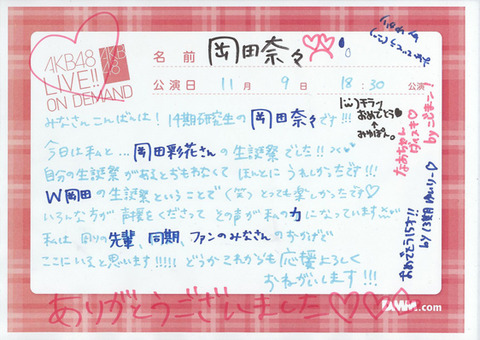 AKB48
LIVE!!
ON DEMAND
AKB
48
名前 岡田奈々
公演日 11月9日 18:30 公演
みなさんこんばんは！14期研究生の岡田奈々です!!!
今日は私と…岡田彩花さんの生誕祭でした!!
自分の生誕祭があるとおもわなくて ほんとにうれしかったです!!!
W岡田の生誕祭ということで(笑)とっても楽しかったです♡
いろんな方が声援をくださって その声が私の力になっています
私は周りの先輩、同期、ファンのみなさんのおかげで
ここにいると思います!!!!! どうかこれからも応援よろしく
おねがいします!!!
ありがとうございました♡♡♡
おめでとう♥
みゆぽん。
なぁちゃん
by こじまこ！
おめでとう15才!!
.com